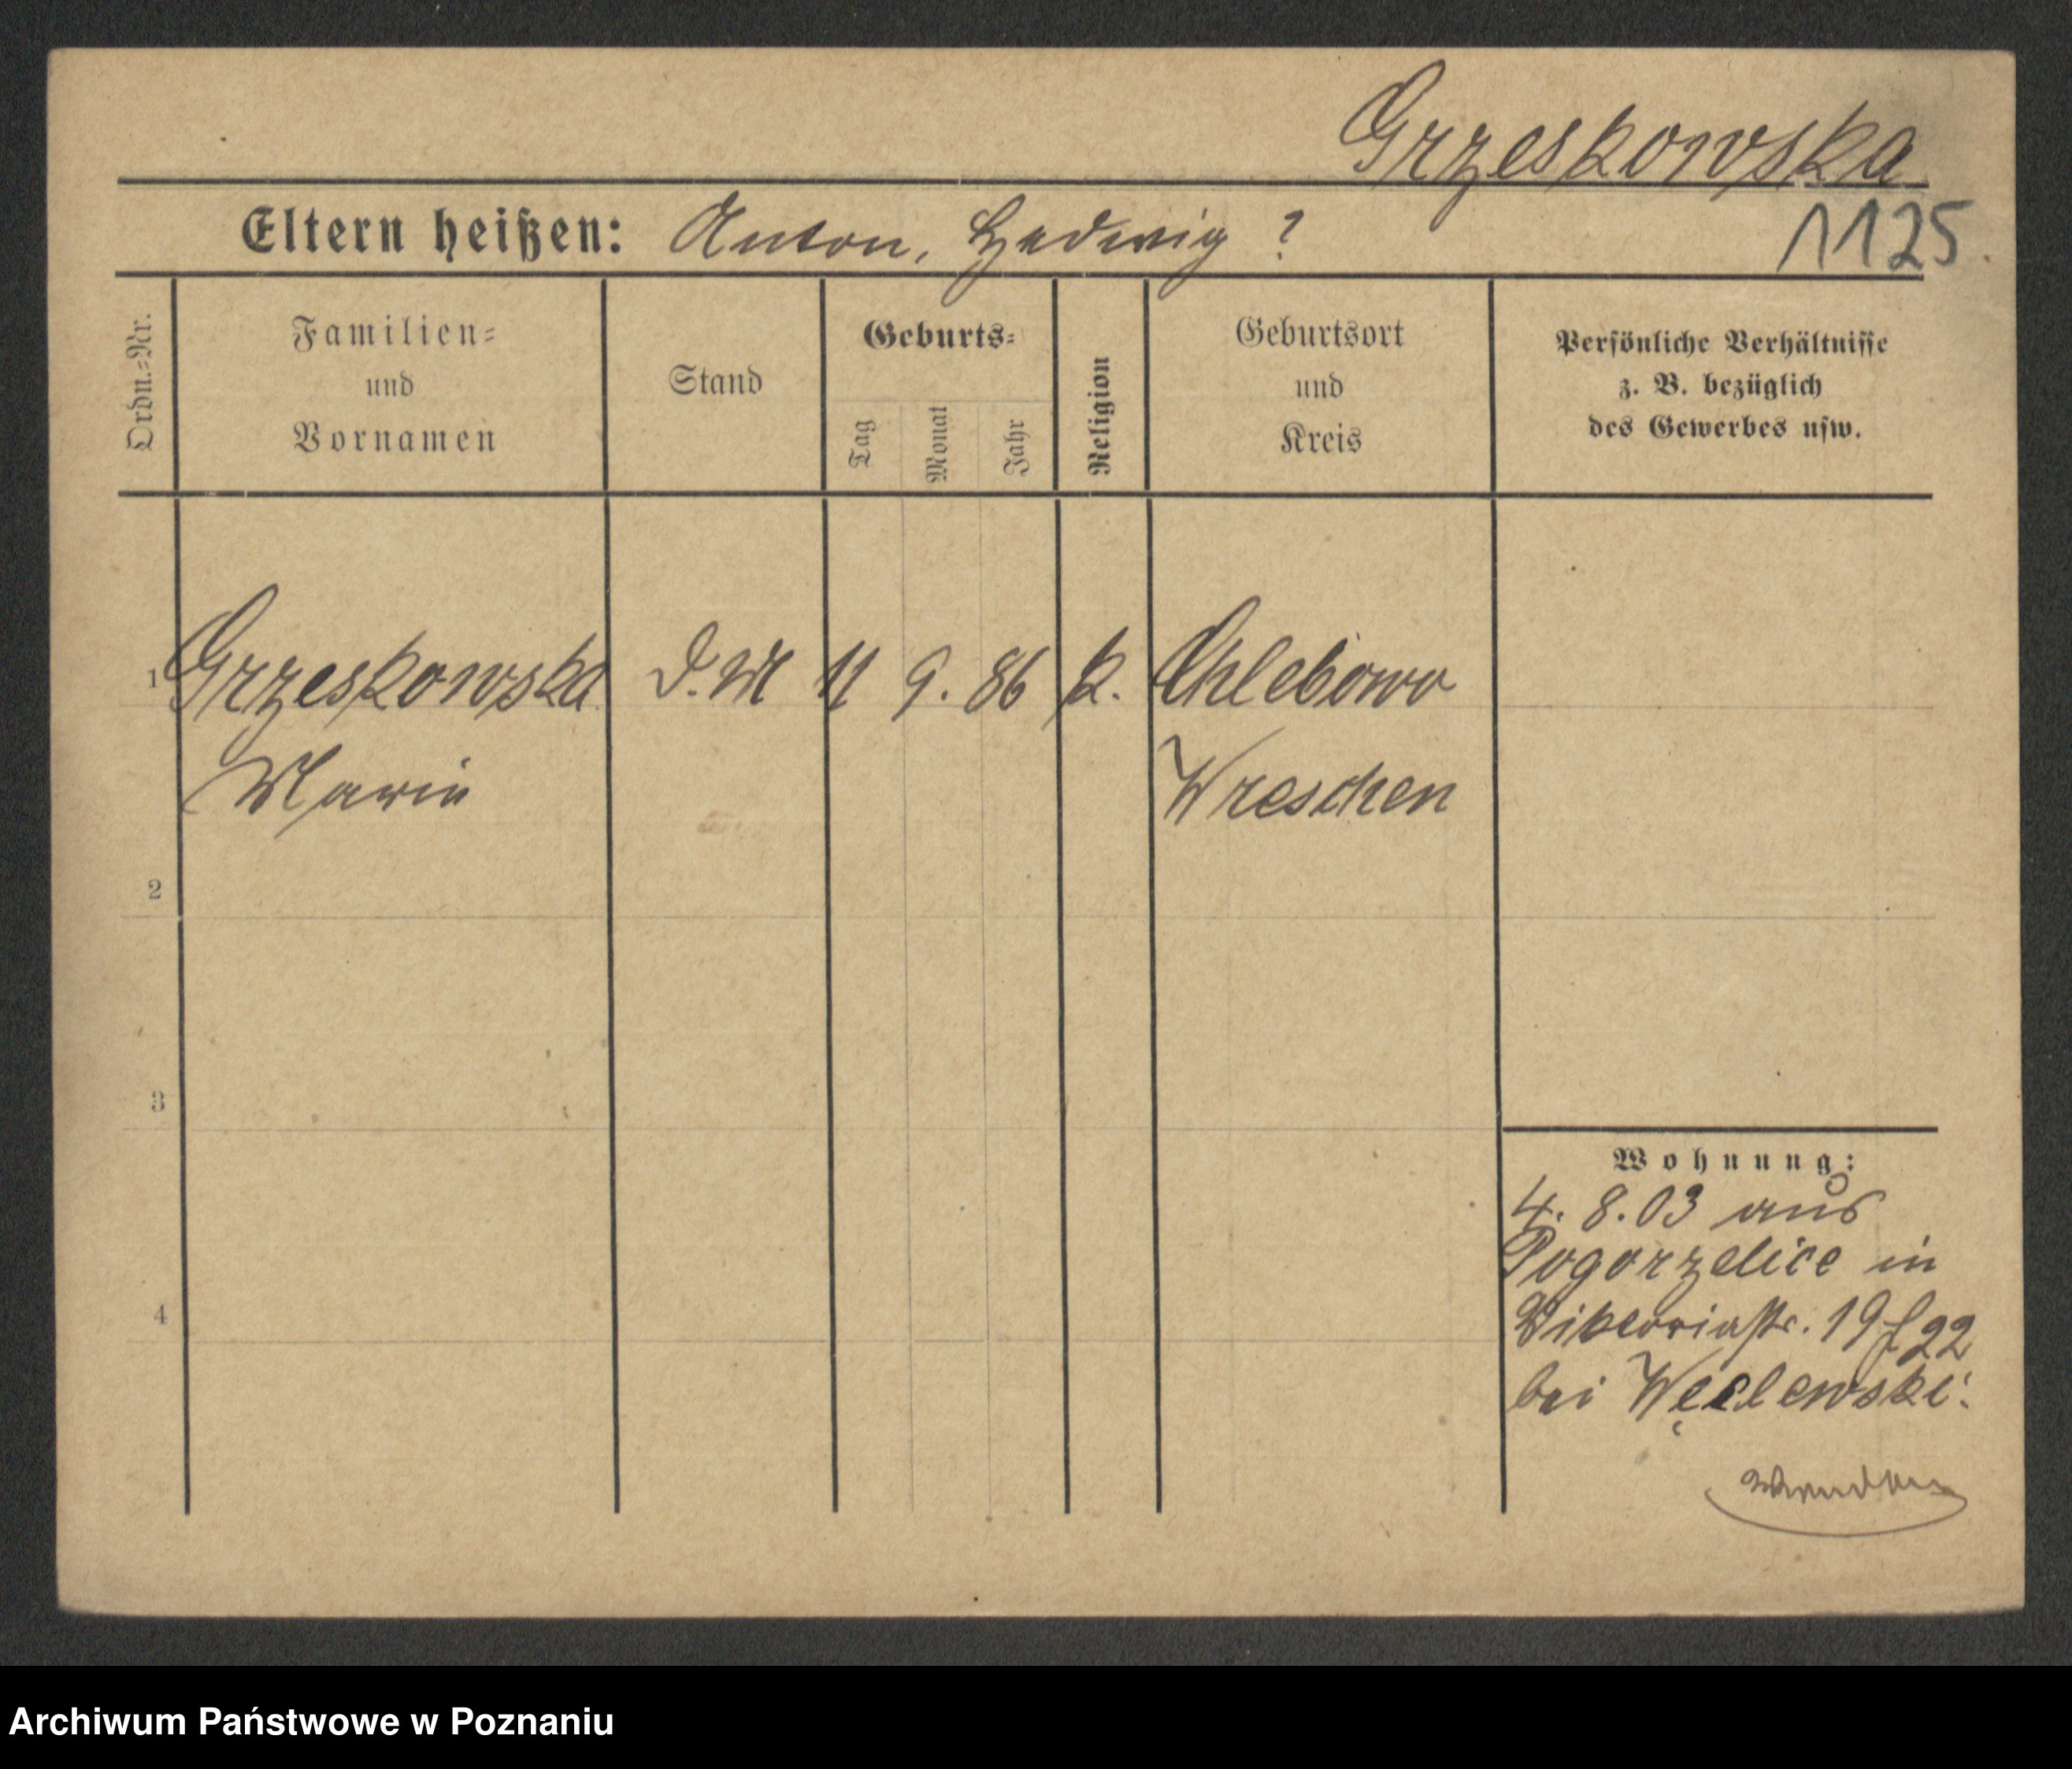 Grzeskowska
Eltern heißen: Anton, Hedwig ?
1125
Ordn.-Nr.
Familien-
und
Vornamen
Stand
Geburts-
Tag
Monat
Jahr
Religion
Geburtsort
und
Kreis
Persönliche Verhältnisse
z. B. bezüglich
des Gewerbes usw.
1 Grzeskowska D.M 11 9. 86 k. Chlebowo
Marie Wreschen
2
3
4
Wohnung:
4. 8. 03 aus
Pogorzelice in
Viktoriastr. 19
bei Węclewski.
Archiwum Państwowe w Poznaniu